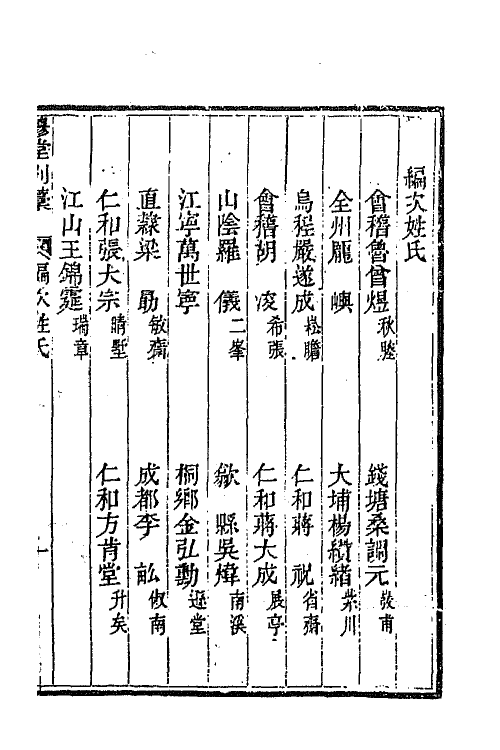 編次姓氏
會稽魯曾煜秋塍　錢塘桑調元弢甫
全州龐　嶼　大埔楊纘緒紫川
烏程嚴遂成崧瞻　仁和蔣　祝省齋
會稽胡　浚希張　仁和蔣大成展亭
山陰羅　儀二峯　歙　縣吳煒南溪
江寧萬世寧　桐鄉金弘勳遜堂
直隸梁　勛敏齋　成都李　畝攸南
仁和張大宗晴墅　仁和方肯堂升矣
江山王錦霆瑞章
穆堂別藁　編次姓氏　一